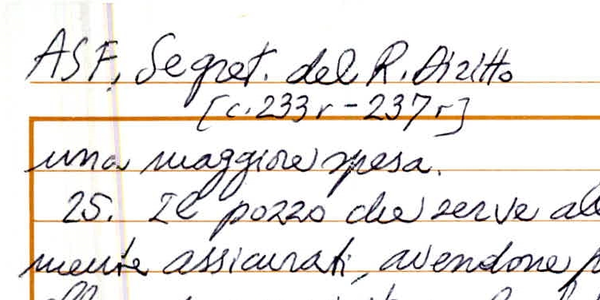 ASF, Segret. del R. Diritto
[c.233r-237r]
una maggiore spesa.
25. Il pozzo che serve al
mente assicurati, avendone